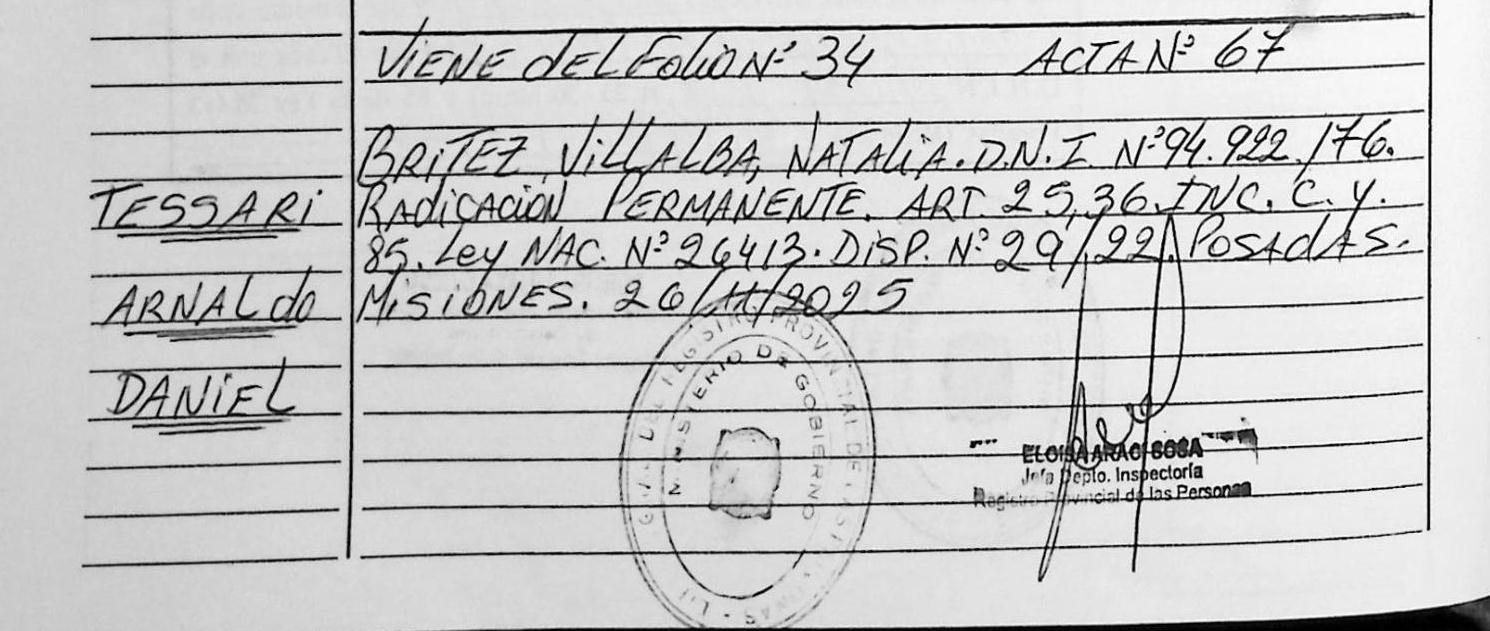 VIENE dEL Folio Nº 34 ACTA Nº 67
BRITEZ VILLALBA, NATALIA. D.N.I. Nº 94.922.176.
RADICACIÓN PERMANENTE. ART. 25,36. INC. C. Y.
85. Ley NAC. Nº 26413. DISP. Nº 29/22. POSADAS.
MISIONES. 26/11/2025
TESSARI
ARNALdo
DANIEL
REGISTRO PROVINCIAL DE LAS
MINISTERIO DE GOBIERNO
ELOISA ARACI SOSA
Jefa Depto. Inspectoría
Registro Provincial de las Personas